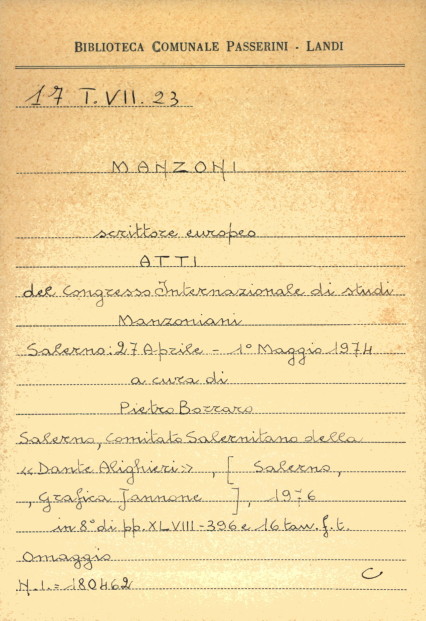 BIBLIOTECA COMUNALE PASSERINI - LANDI
17 T.VII.23
MANZONI
scrittore europeo
ATTI
del Congresso Internazionale di studi
Manzoniani
Salerno: 27 Aprile - 1° Maggio 1974
a cura di
Pietro Borraro
Salerno, Comitato Salernitano della
«Dante Alighieri» , [ Salerno,
, Grafica Jannone ], 1976
in 8° di pp. XLVIII-396 e 16 tav. f.t.
Omaggio
N.I.= 180462
C